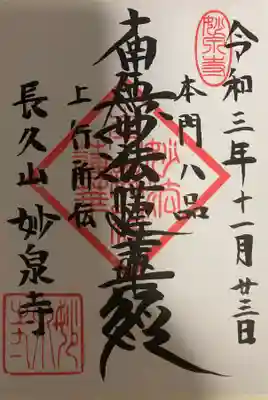 令和三年十一月廿三日
本門八品
南無妙法蓮華経
上行所伝
長久山 妙泉寺
妙泉寺